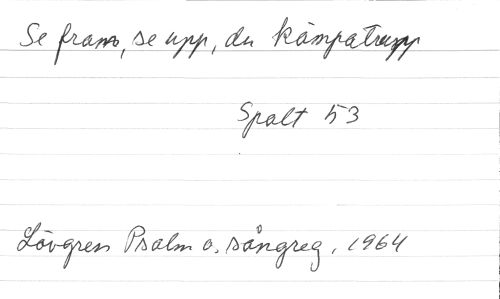 Se fram, se upp, du kämpatrupp
Spalt 53
Lövgren Psalm o. sångreg, 1964